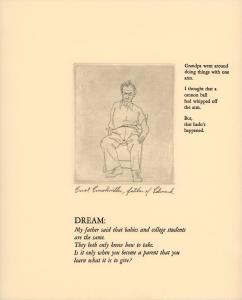 Grandpa went around
doing things with one
arm.
I thought that a
cannon ball
had whipped off
the arm.
But,
that hadn't
happened.
father of Edward
DREAM:
My father said that babies and college students
are the same.
They both only know how to take.
Is it only when you become a parent that you
learn what it is to give?